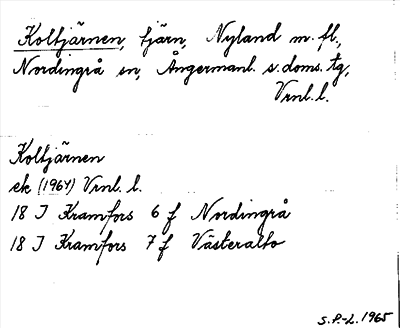 Koltjärnen, tjärn, Nyland m. fl.,
Nordingrå sn, Ångermanl. s. doms. tg,
Vrnl. l.
Koltjärnen
ek (1964) Vrnl. l.
18 J Kramfors 6 f Nordingrå
18 J Kramfors 7 f Västeralto
S.P.-L. 1965